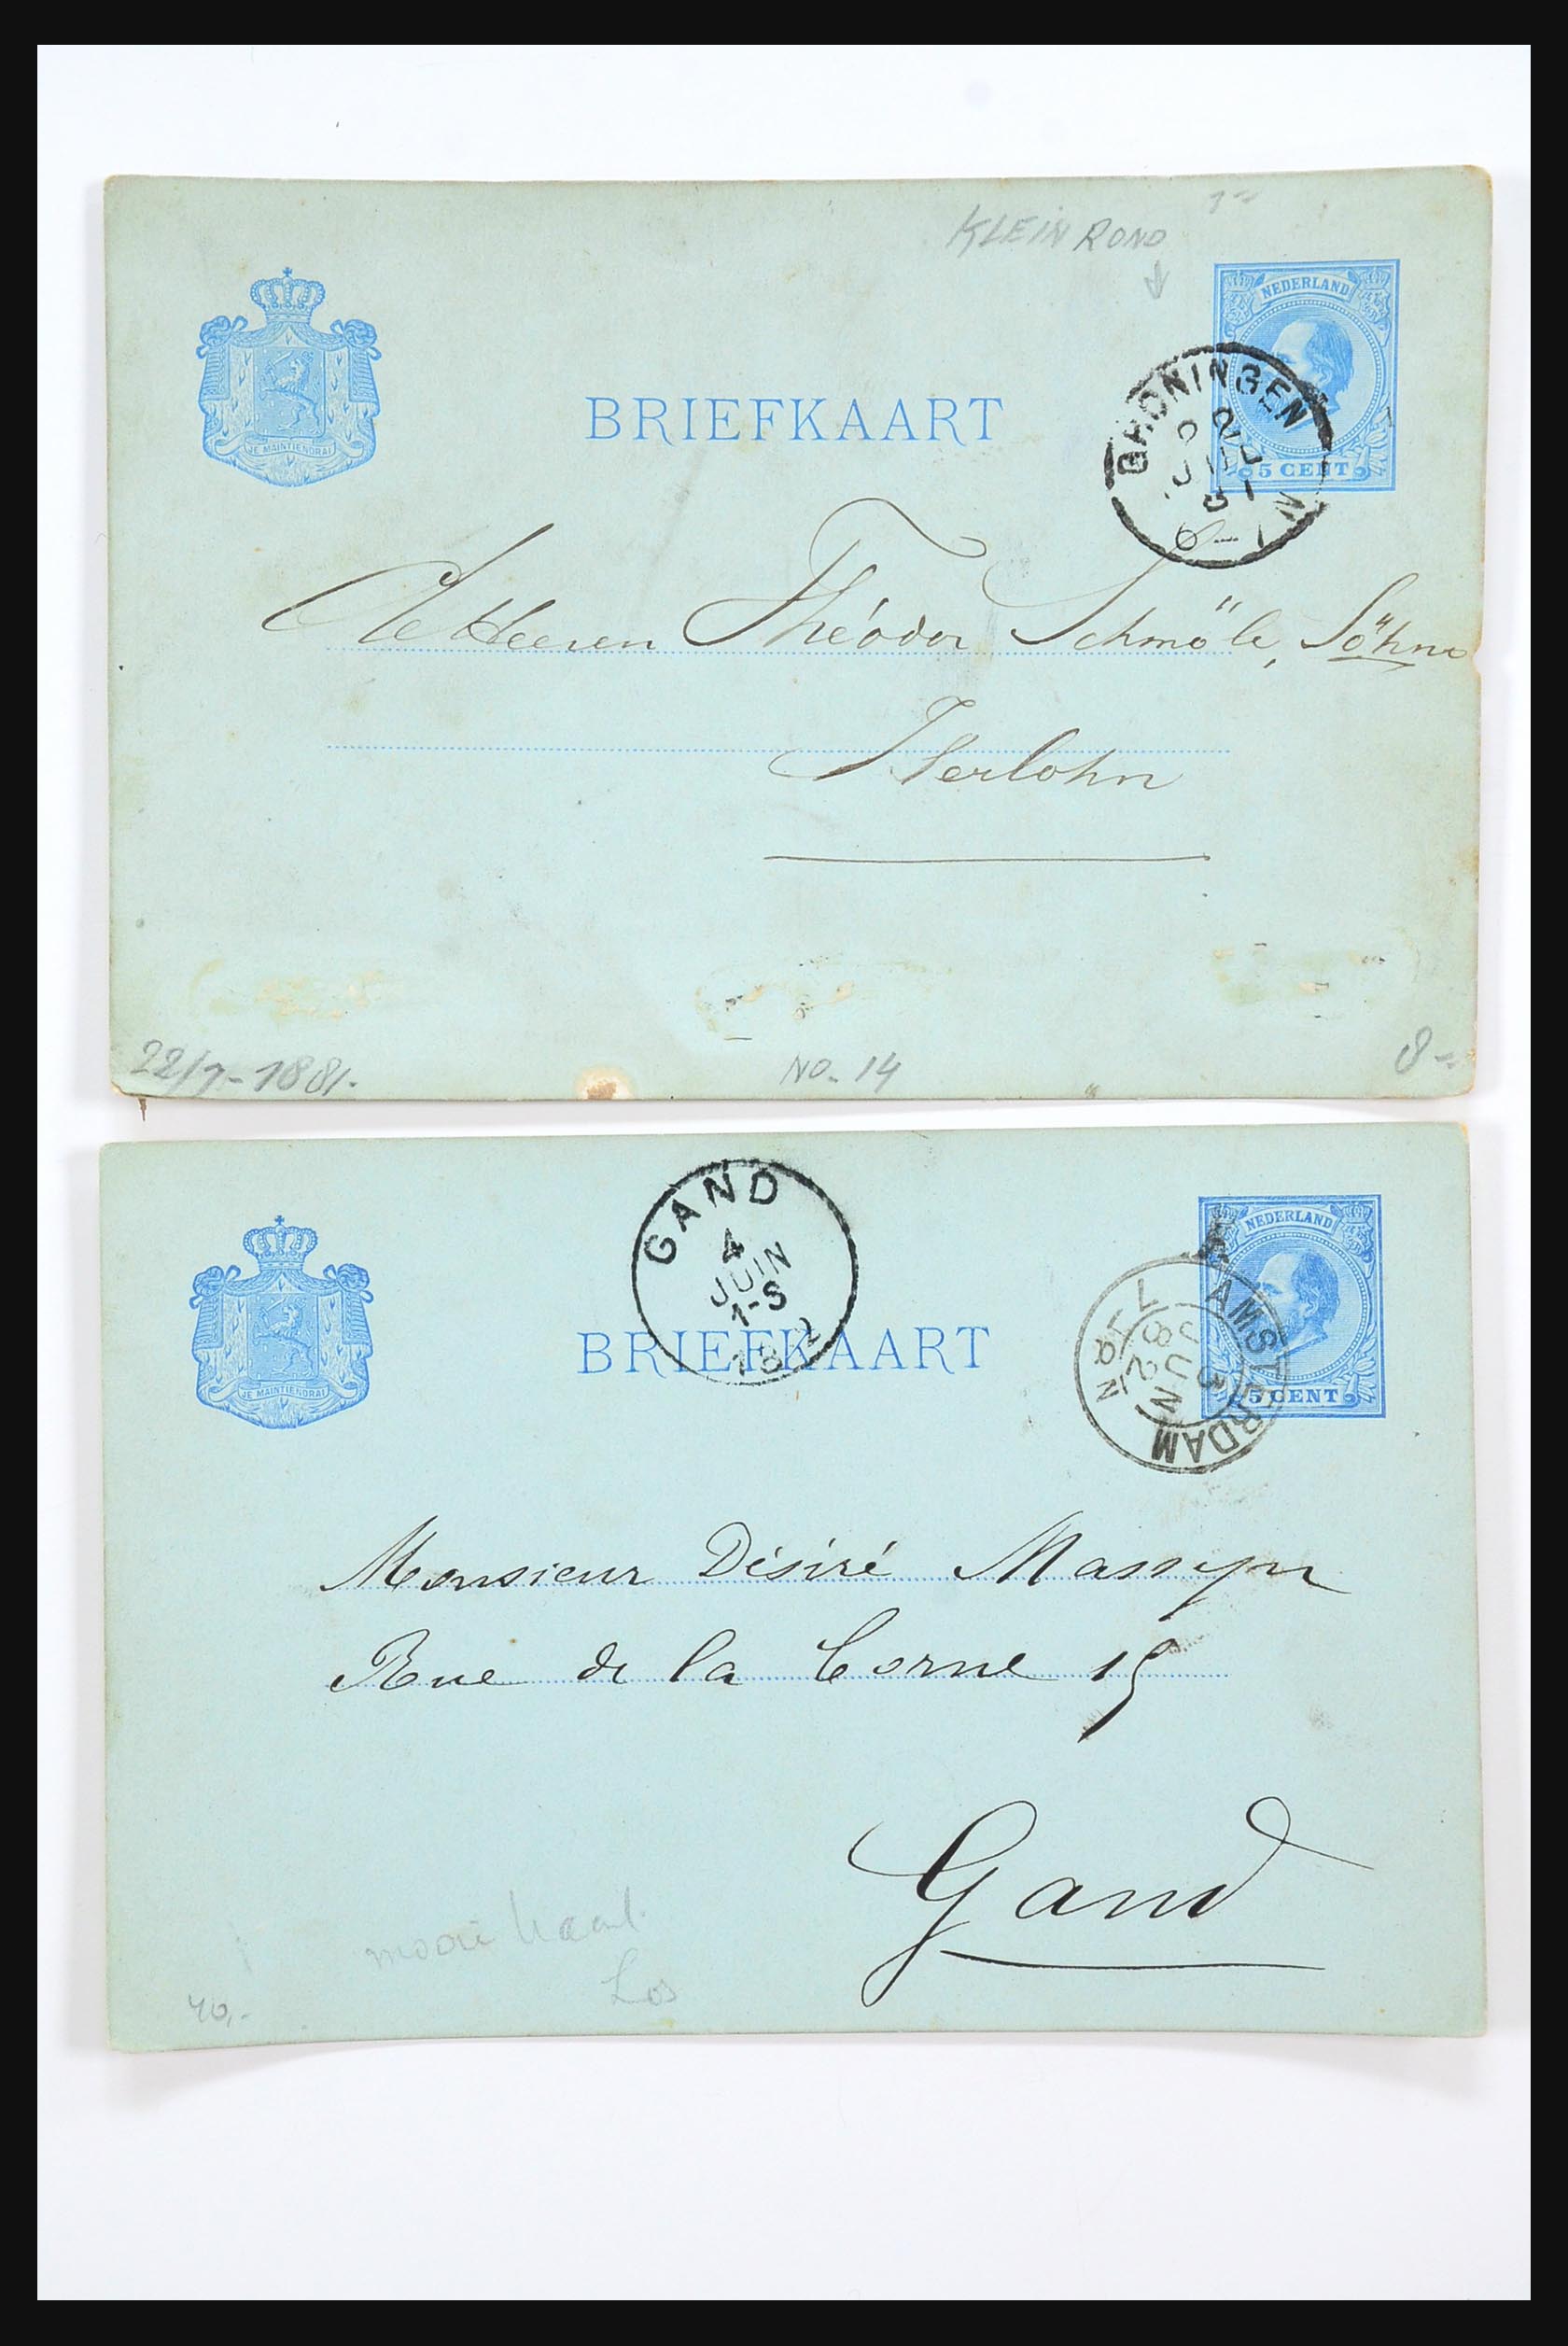 KLEIN ROND
NEDERLAND
5 CENT
JE MAINTIENDRAI
BRIEFKAART
GRONINGEN
22
JUL
81
De Heeren Théodor Schmöle, Söhne
Iserlohn
22/7-1881.
NO. 14
8-
GAND
4
JUIN
1-S
1882
NEDERLAND
5 CENT
JE MAINTIENDRAI
BRIEFKAART
AMSTERDAM
3
JUN
82
Monsieur Désiré Massyn
Rue de la Corne 15
Gand
mooie kaart
Los
40,-